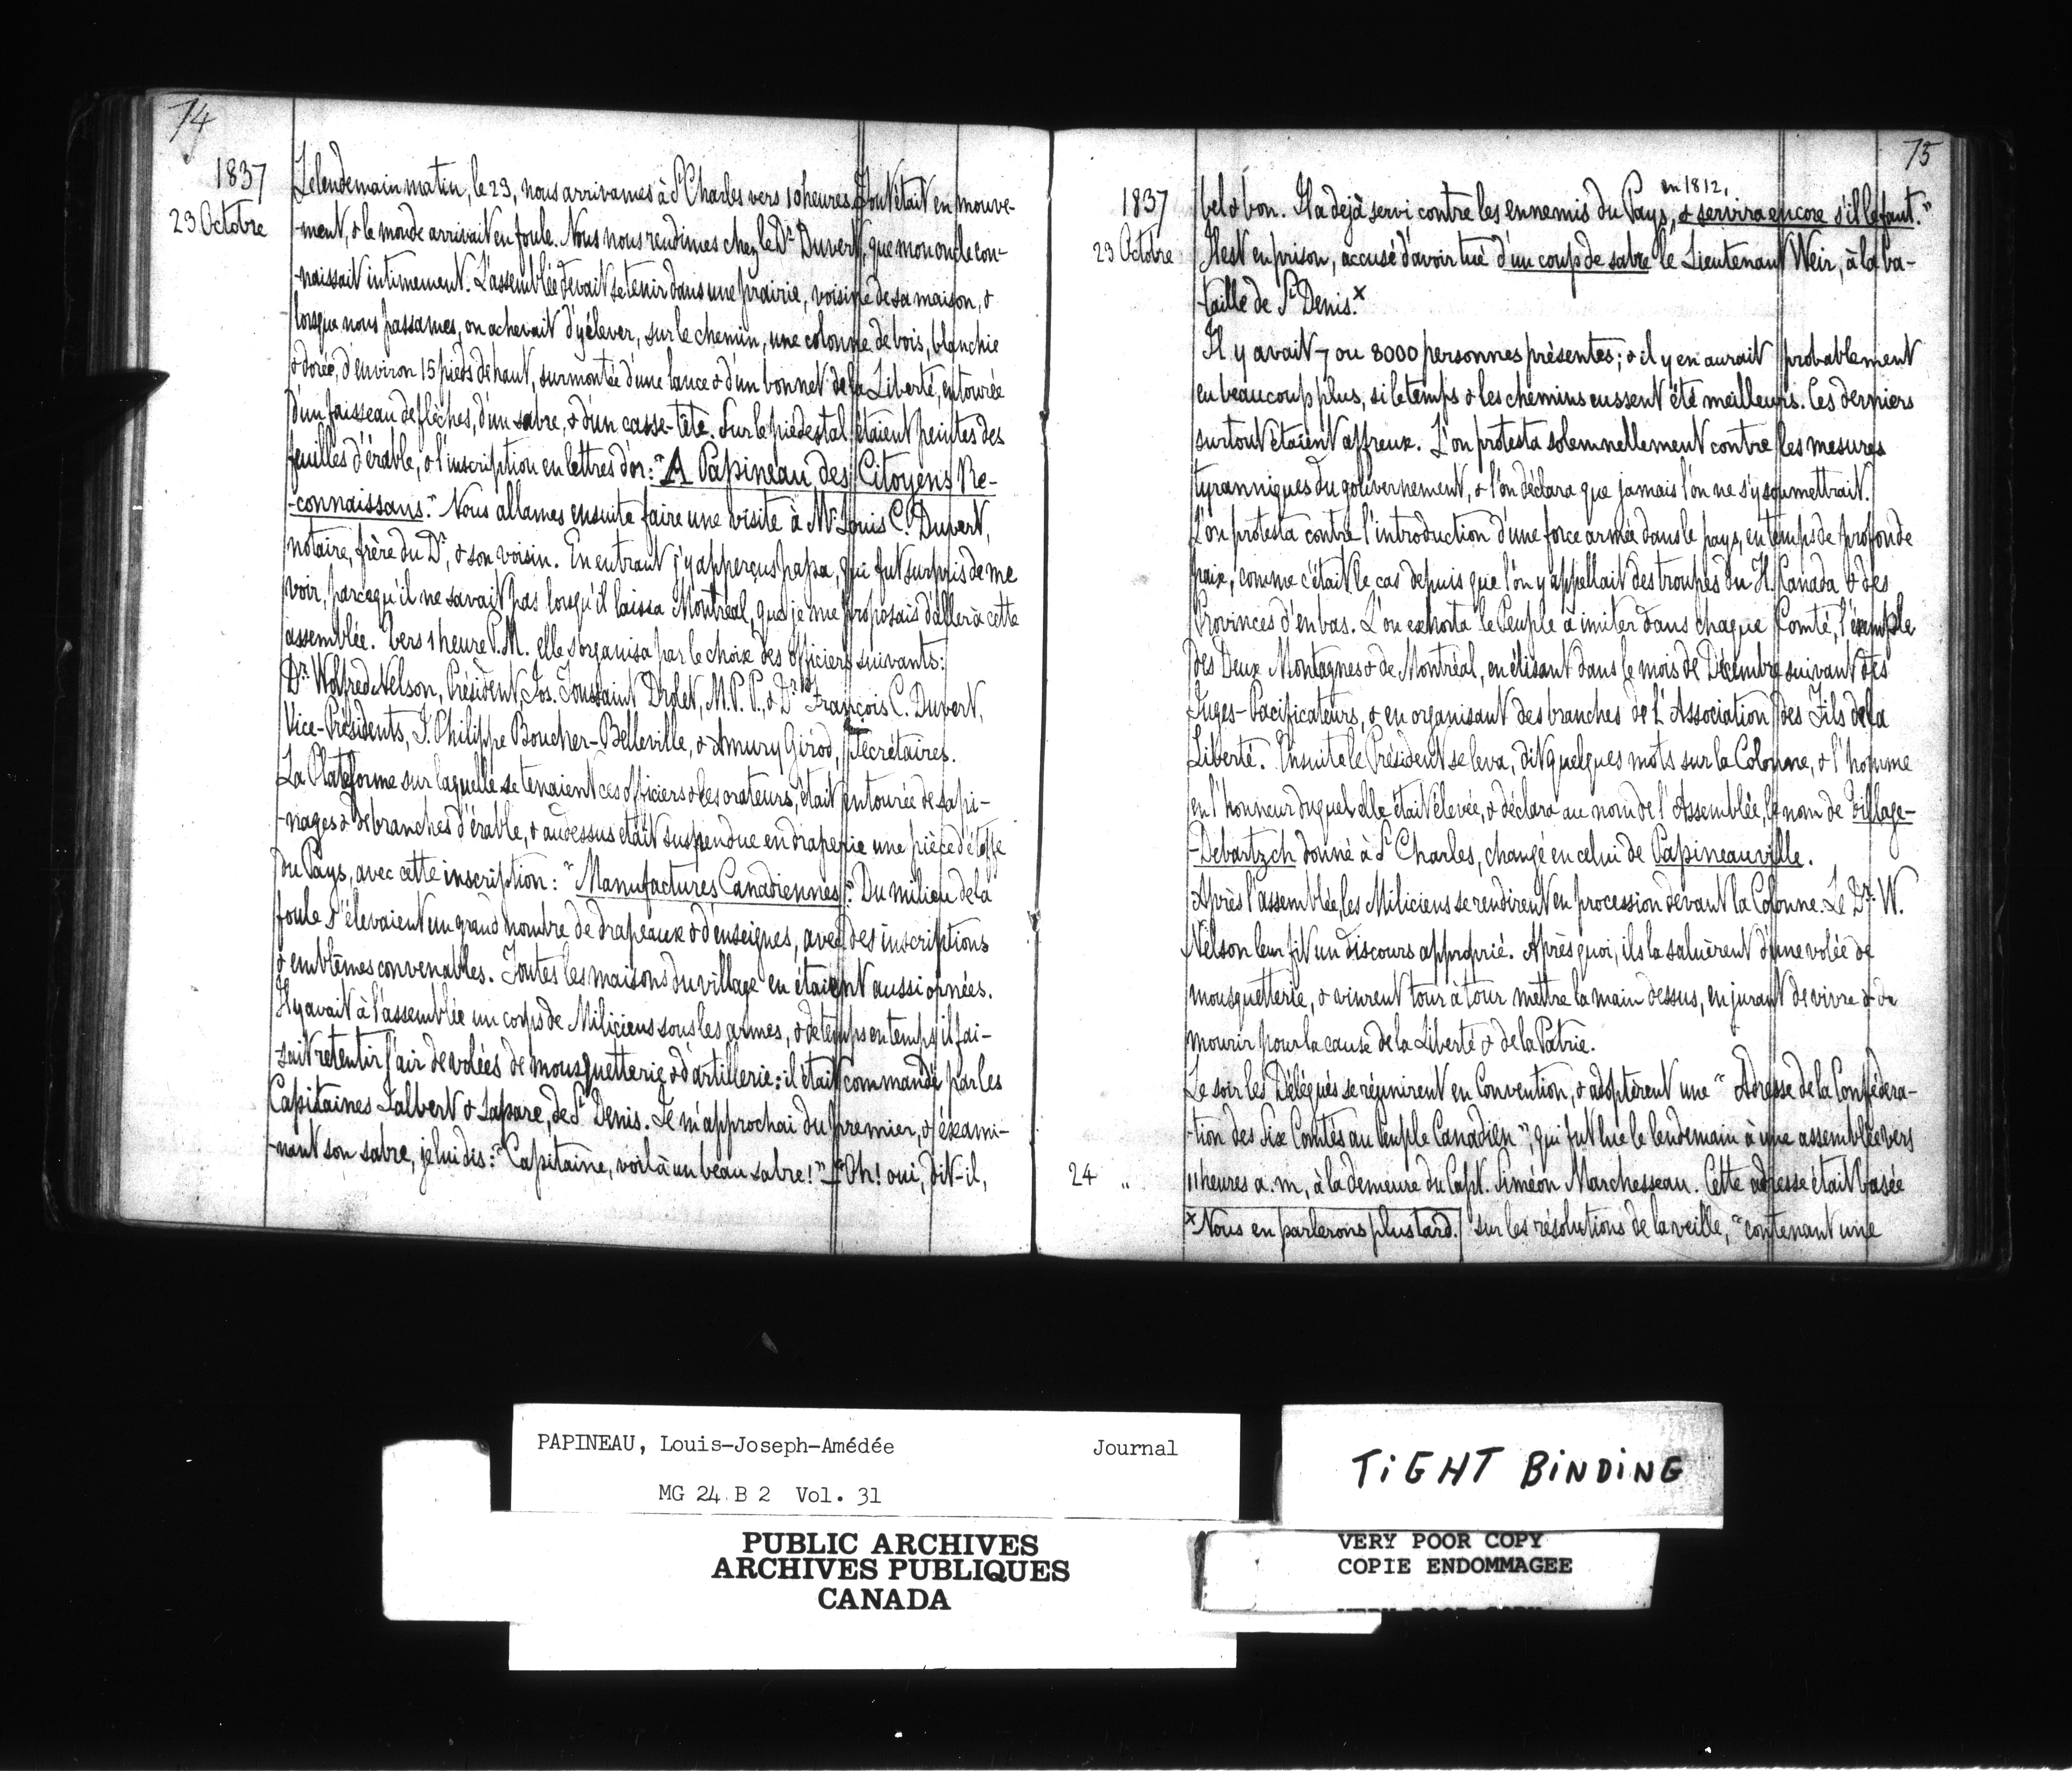 74
1837
23 Octobre
Le lendemain matin, le 23, nous arrivames à St Charles vers 10 heures. Tout était en mouve-
-ment, & le monde arrivait en foule. Nous nous rendimes chez le Dr Duvert, que mon oncle con-
-naissait intimement. L'assemblée devait se tenir dans une prairie, voisine de sa maison, &
lorsque nous passames, on achevait d'y élever, sur le chemin, une colonne de bois, blanchie
& dorée, d'environ 15 pieds de haut, surmontée d'une lance & d'un bonnet de la Liberté, entourée
d'un faisseau de flèches, d'un sabre, & d'un casse-tête. Sur le piédestal étaient peintes des
feuilles d'érable, & l'inscription en lettres d'or: "A Papineau des Citoyens Re-
-connaissans." Nous allames ensuite faire une visite à Mr Louis C. Duvert,
notaire, frère du Dr, & son voisin. En entrant j'y apperçus papa, qui fut surpris de me
voir, parcequ'il ne savait pas lorsqu'il laissa Montréal, que je me proposais d'aller à cette
assemblée. Vers 1 heure P.M. elle s'organisa par le choix des officiers suivants:
Dr. Wolfred Nelson, Président, Jos. Toussaint Drolet, M.P.P., & Dr. François C. Duvert,
Vice-Présidents, J. Philippe Boucher-Belleville, & Amury Girod, Secrétaires.
La Plateforme sur laquelle se tenaient ces officiers & les orateurs, était entourée de sapi-
-nages & de branches d'érable, & audessus était suspendue en draperie une pièce d'étoffe
du Pays, avec cette inscription: "Manufactures Canadiennes." Du milieu de la
foule s'élevaient un grand nombre de drapeaux & d'enseignes, avec des inscriptions
& emblêmes convenables. Toutes les maisons du village en étaient aussi ornées.
Il y avait à l'assemblée un corps de Miliciens sous les armes, & de temps en temps il fai-
-sait retentir l'air de volées de mousquetterie & d'artillerie: il était commandé par les
Capitaines Lalbert & Lapare, de St Denis. Je m'approchai du premier, & éxami-
-nant son sabre, je lui dis: "Capitaine, voilà un beau sabre!" - "Oh! oui, dit-il,
75
1837
23 Octobre
en 1812,
bel & bon. Il a dejà servi contre les ennemis du Pays, & servira encore s'il le faut."
Il est en prison, accusé d'avoir tué d'un coup de sabre le Lieutenant Weir, à la ba-
-taille de St Denis.x
Il y avait 7 ou 8000 personnes présentes; & il y en aurait probablement
eu beaucoup plus, si le temps & les chemins eussent été meilleurs. Ces derniers
surtout étaient affreux. L'on protesta solemnellement contre les mesures
tyranniques du gouvernement, & l'on déclara que jamais l'on ne s'y soumettrait.
L'on protesta contre l'introduction d'une force armée dans le pays, en temps de profonde
paix, comme c'était le cas depuis que l'on y appellait des troupes du H. Canada & des
Provinces d'en bas. L'on exhorta le Peuple à imiter dans chaque Comté, l'exemple
des Deux Montagnes & de Montréal, en élisant dans le mois de Décembre suivant des
Juges-Pacificateurs, & en organisant des branches de L'Association des Fils de la
Liberté. Ensuite le Président se leva, dit quelques mots sur la Colonne, & l'homme
en l'honneur duquel elle était élevée, & déclara au nom de l'Assemblée, le nom de Village-
-Debartzch donné à St Charles, changé en celui de Papineauville.
Après l'assemblée, les Miliciens se rendirent en procession devant la Colonne. Le Dr. W.
Nelson leur fit un discours approprié. Après quoi, ils la saluèrent d'une volée de
mousquetterie, & vinrent tour à tour mettre la main dessus, en jurant de vivre & de
mourir pour la cause de la Liberté & de la Patrie.
Le soir les Délégués se réunirent en Convention, & adoptèrent une "Adresse de la Confédéra-
-tion des Six Comtés au Peuple Canadien", qui fut lue le lendemain à une assemblée vers
24 "
11 heures a.m, à la demeure du Capt. Siméon Marchesseau. Cette adresse était basée
sur les résolutions de la veille, "contenant une
x Nous en parlerons plus tard.
PAPINEAU, Louis-Joseph-Amédée Journal
MG 24 B 2 Vol. 31
PUBLIC ARCHIVES
ARCHIVES PUBLIQUES
CANADA
TIGHT BINDING
VERY POOR COPY
COPIE ENDOMMAGEE